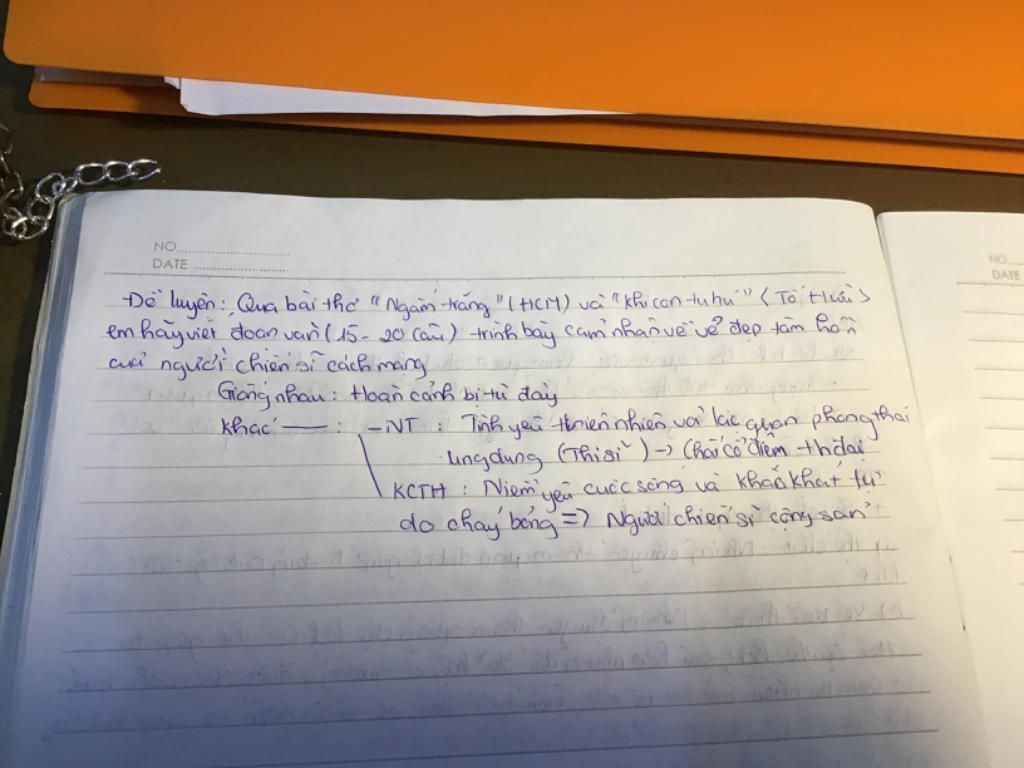 NO.
DATE
NO.
DATE
Đề luyện: Qua bài thơ "Ngắm trăng" (HCM) và "Khi con tu hú" (Tố Hữu)
em hãy viết đoạn văn (15 - 20 câu) trình bày cảm nhận về vẻ đẹp tâm hồn
của người chiến sĩ cách mạng
Giống nhau: Hoàn cảnh bị tù đày
Khác — : - NT : Tình yêu thiên nhiên và lạc quan phong thái
ung dung (Thi sĩ) → Chất cổ điểm - thđại
KCTH : Niềm yêu cuộc sống và khao khát tự
do cháy bỏng => Người chiến sĩ cộng sản